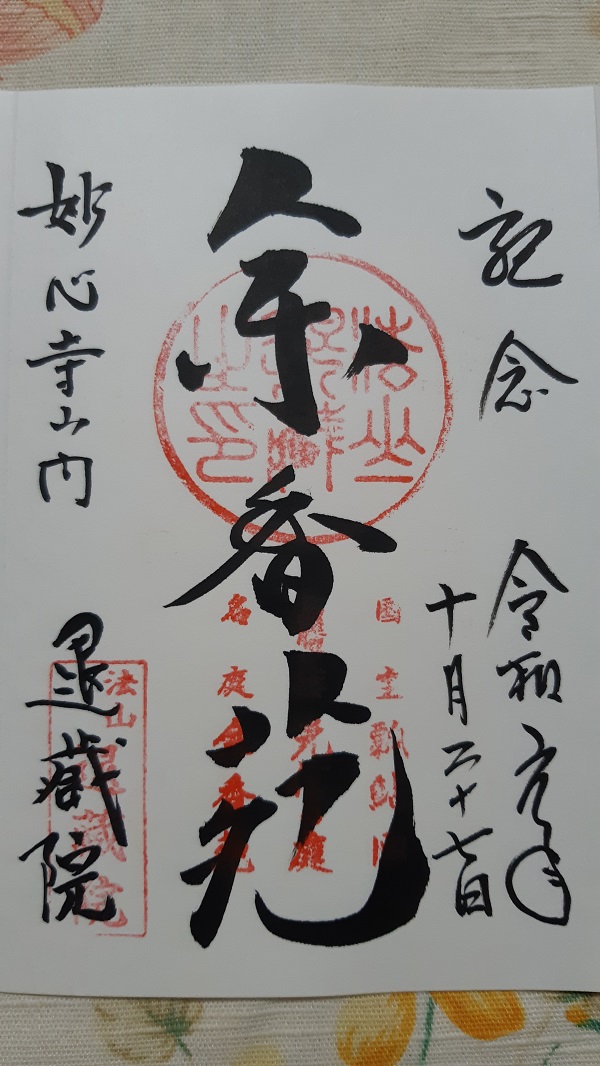 記念
令和元年
十月二十七日
余香苑
国宝瓢鮎図
名庭余香苑
妙心寺山内
退蔵院
法山退蔵院